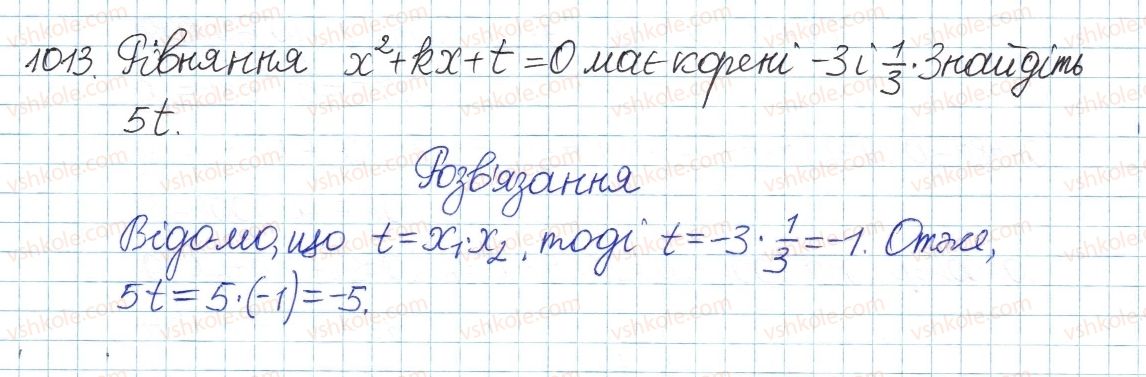 1013. Рівняння x²+kx+t=0 має корені -3 і 1/3. Знайдіть
5t.
Розв'язання
Відомо, що t=x₁·x₂, тоді t=-3·1/3=-1. Отже,
5t=5·(-1)=-5.